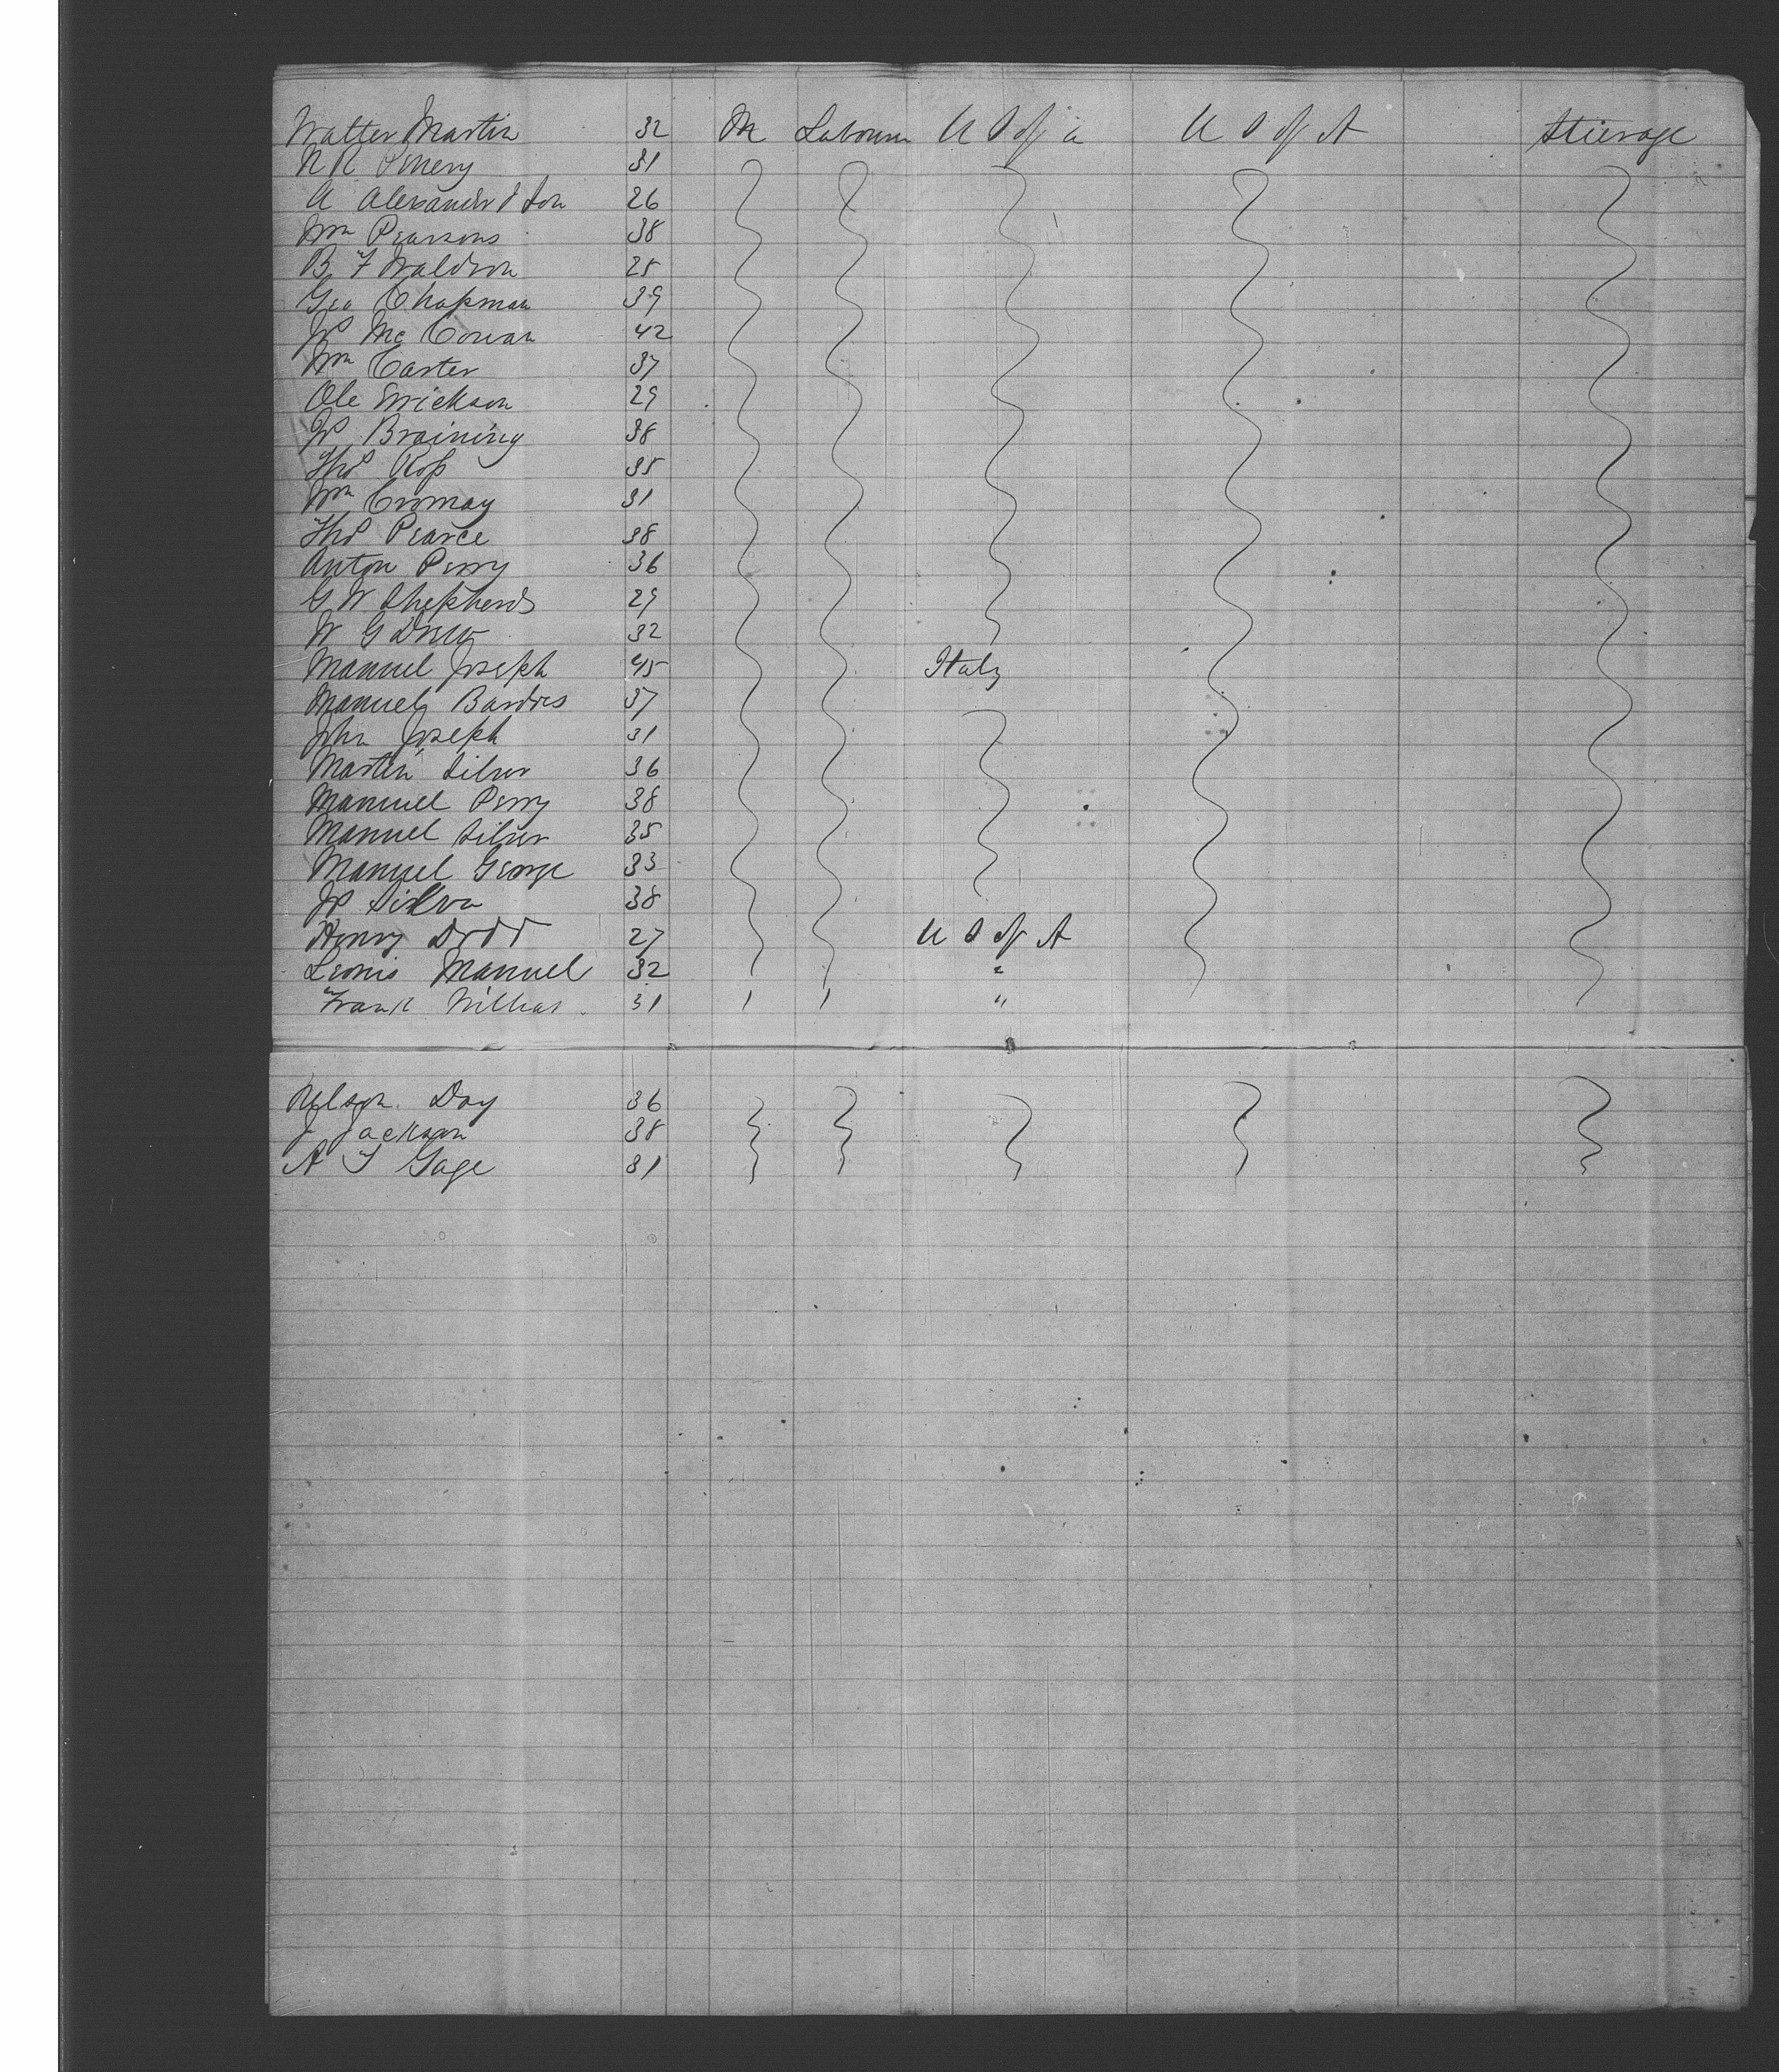 Walter Martin 32 M Labourer U S of a U S of A Steerage
N R Emery 31
A Alexander & Son 26
Wm Pearsons 38
B F Waldron 25
Geo Chapman 39
Js Mc Cowan 42
Wm Carter 37
Ole Errickson 29
Js Braining 38
Ths Ross 35
Wm Cromay 31
Ths Pearce 38
Anton Perry 36
G W Shepherd 29
W G Drew 32
Manuel Joseph 45 Italy
Manuel 37
John Joseph 31
Martin Silver 36
Manuel Perry 38
Manuel Silver 35
Manuel George 33
Js Silva 38
Henry Dodd 27 U S of A
Manuel 32 "
Frank 31 "
Nelson Day 36
J Jackson 38
A T Gage 31